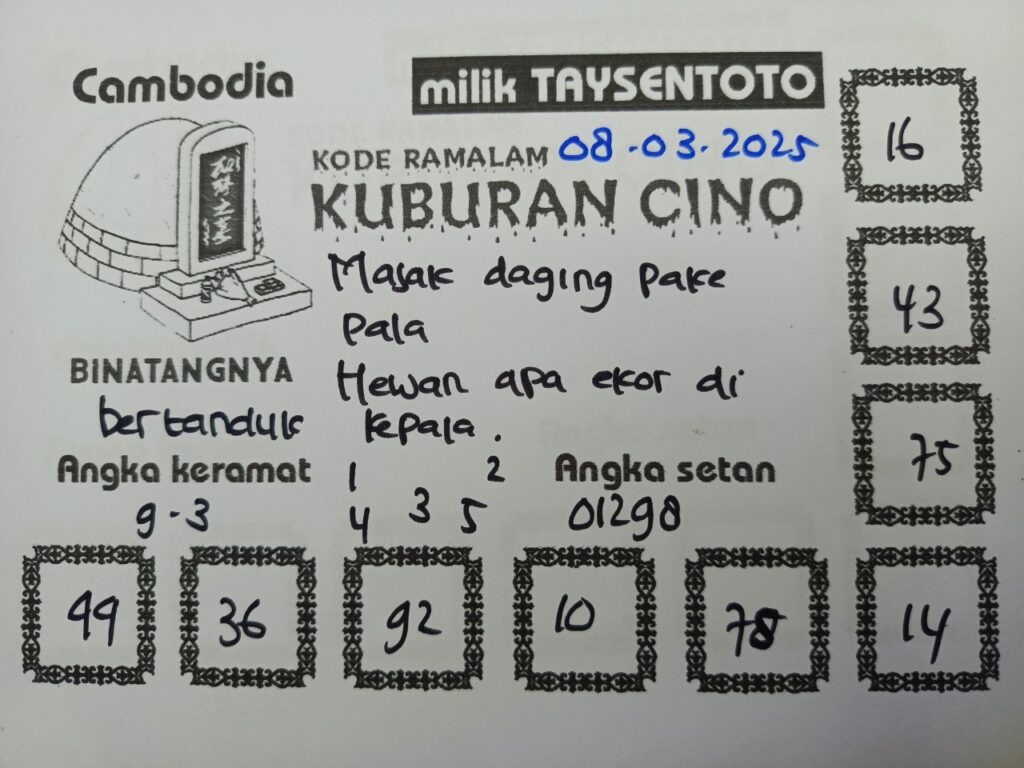 Cambodia
milik TAYSENTOTO
KODE RAMALAM 08.03.2025
KUBURAN CINO
Masak daging pake
pala
Hewan apa ekor di
kepala.
BINATANGNYA
bertanduk
Angka keramat
9-3
1 2
4 3 5
Angka setan
01298
16
43
75
99
36
92
10
78
14